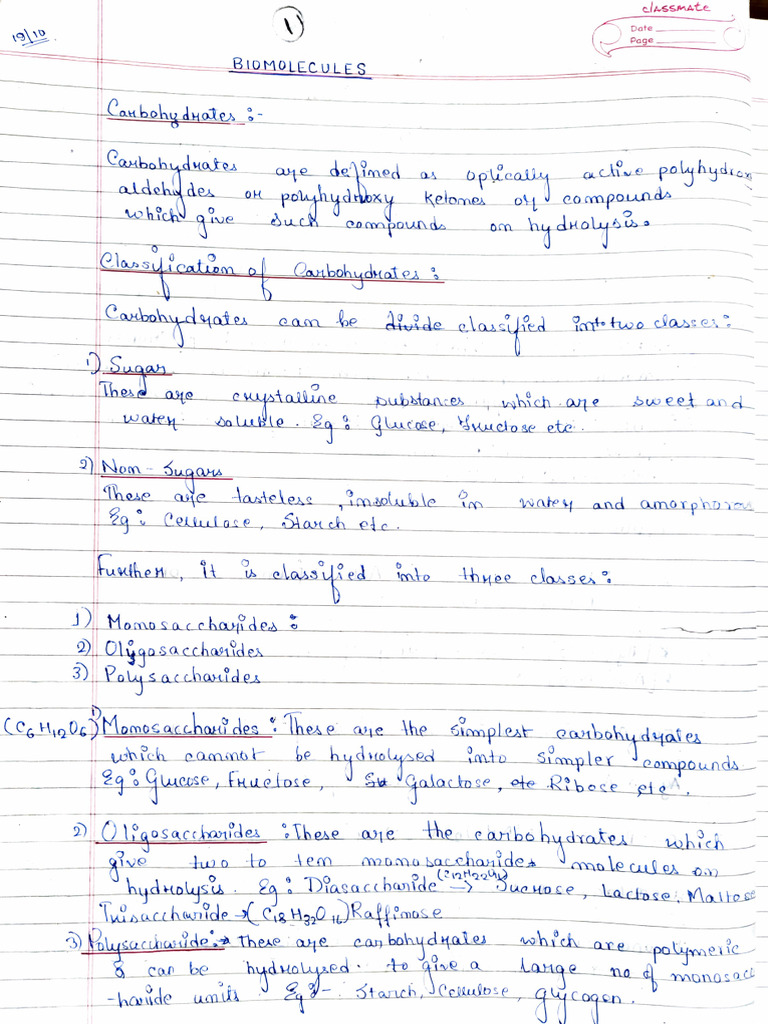 classmate
19/10
1
Date
Page
BIOMOLECULES
Carbohydrates :-
Carbohydrates are defined as optically active polyhydrox
aldehydes or polyhydroxy ketones or compounds
which give such compounds on hydrolysis.
Classification of Carbohydrates :
Carbohydrates can be divide classified into two classes :
1) Sugar
These are crystalline substances, which are sweet and
water soluble. Eg : Glucose, Fructose etc.
2) Non - Sugars
These are tasteless, insoluble in water and amorphous
Eg : Cellulose, Starch etc.
Further, it is classified into three classes :
1) Monosaccharides :
2) Oligosaccharides
3) Polysaccharides
(C6H12O6) 1) Monosaccharides : These are the simplest carbohydrates
which cannot be hydrolysed into simpler compounds
Eg : Glucose, Fructose, Su Galactose, etc Ribose etc.
2) Oligosaccharides : These are the carbohydrates which
give two to ten monosaccharides molecules on
hydrolysis. Eg : Diasaccharide (C12H22O11) → Sucrose, Lactose, Maltose
Trisaccharide → (C18H32O16) Raffinose
3) Polysaccharide :→ These are carbohydrates which are polymeric
& can be hydrolysed. to give a large no of monosacc
-haride units Eg :- Starch, Cellulose, Glycogen.